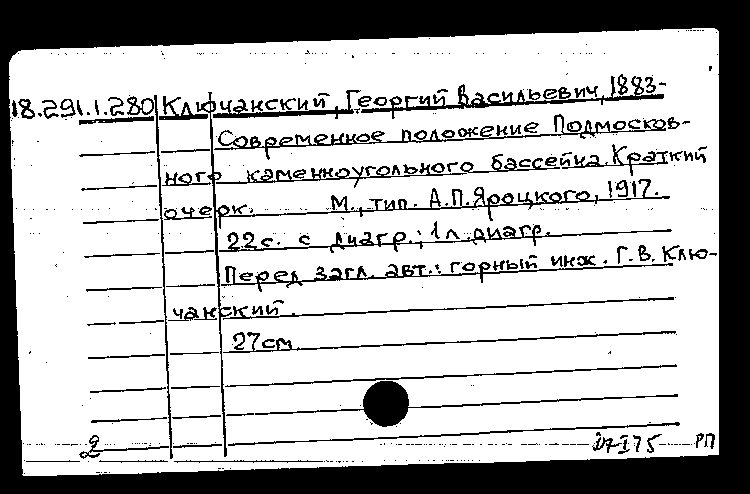 18.291.1.280 Ключанский, Георгий Васильевич, 1883-
Современное положение Подмосков-
ного каменноугольного бассейна. Краткий
очерк. М., тип. А.П.Яроцкого, 1917.
22с. с диагр.; 1л.диагр.
Перед загл. авт.: горный инж. Г.В. Клю-
чанский.
27см
2 РП